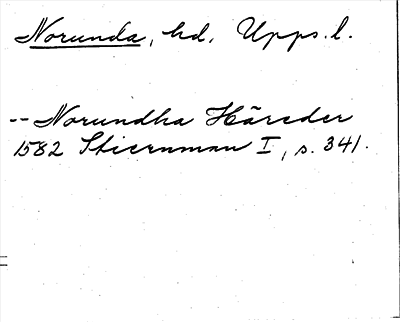 Norunda, hd, Upps. l.
-- Norundha Häreder
1582 Stiernman I, s. 341.